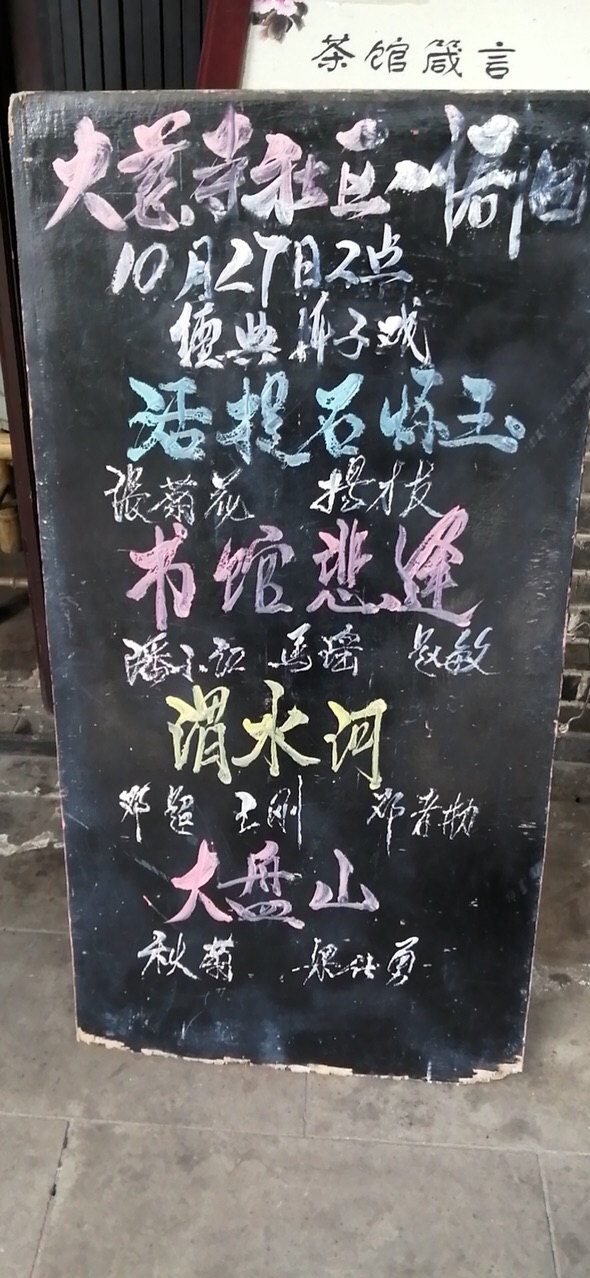 茶馆箴言
大慈寺社区
10月27日2点
经典折子戏
活捉石怀玉
张菊花 杨才友
书馆悲逢
潘小红 马瑶 赵敏
渭水河
邓超 王刚 邓孝勋
大盘山
秋菊 梁仕勇